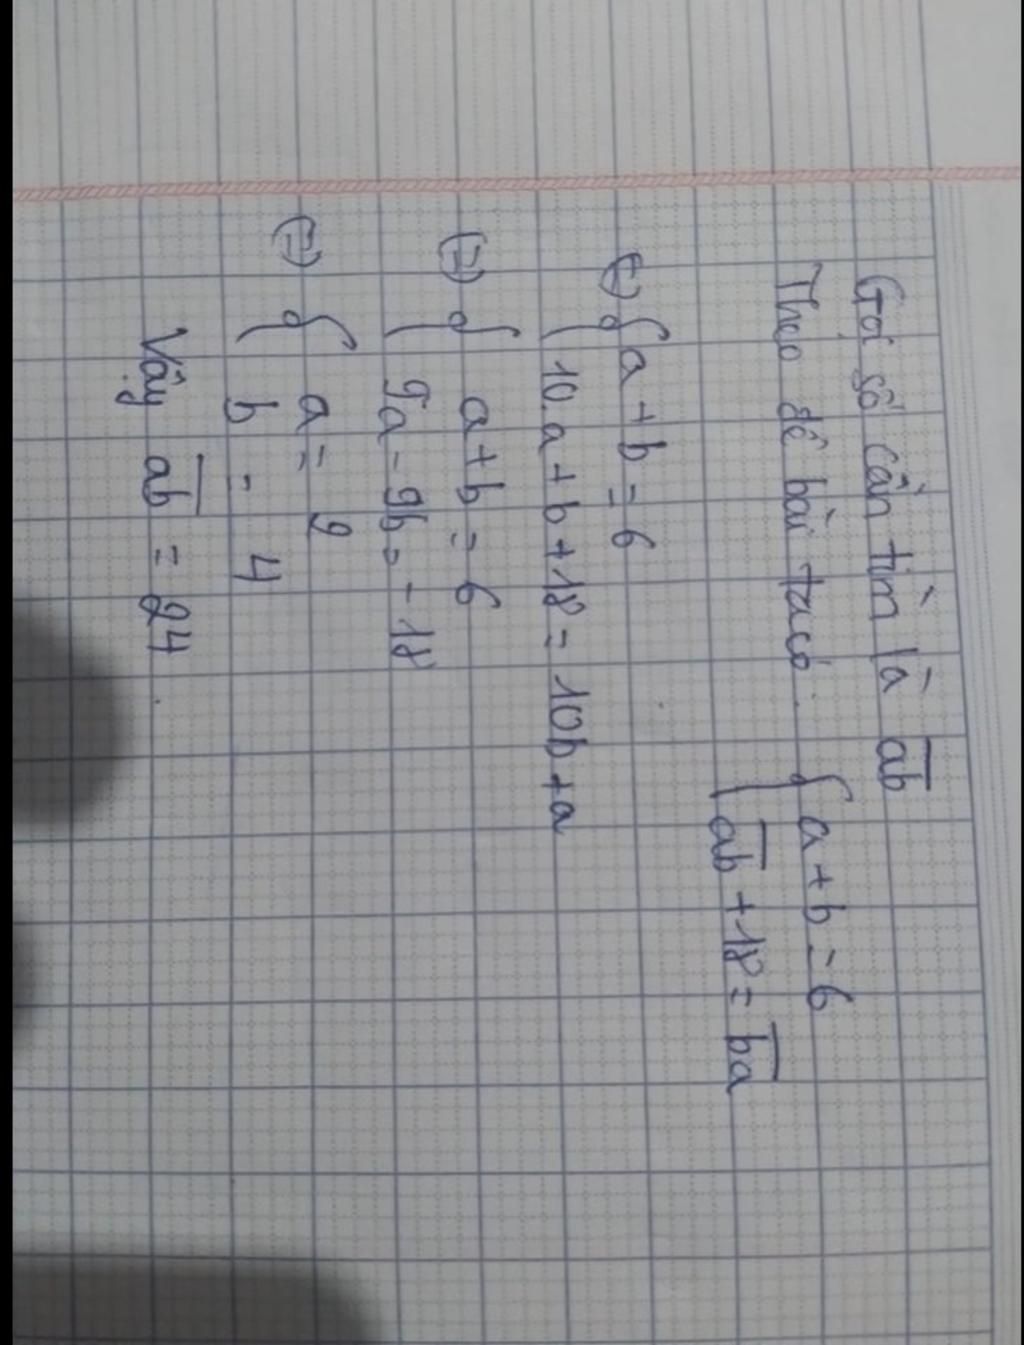 Gọi số cần tìm là \overline{ab}
Theo đề bài ta có: { a + b = 6
\overline{ab} + 18 = \overline{ba}
⇔ { a + b = 6
10.a + b + 18 = 10b + a
⇔ { a + b = 6
9a - 9b = -18
⇔ { a = 2
b = 4
Vậy \overline{ab} = 24.